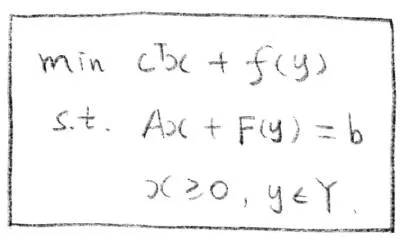 min cᵀx + f(y)
s.t. Ax + F(y) = b
x ≥ 0, y ∈ Y.